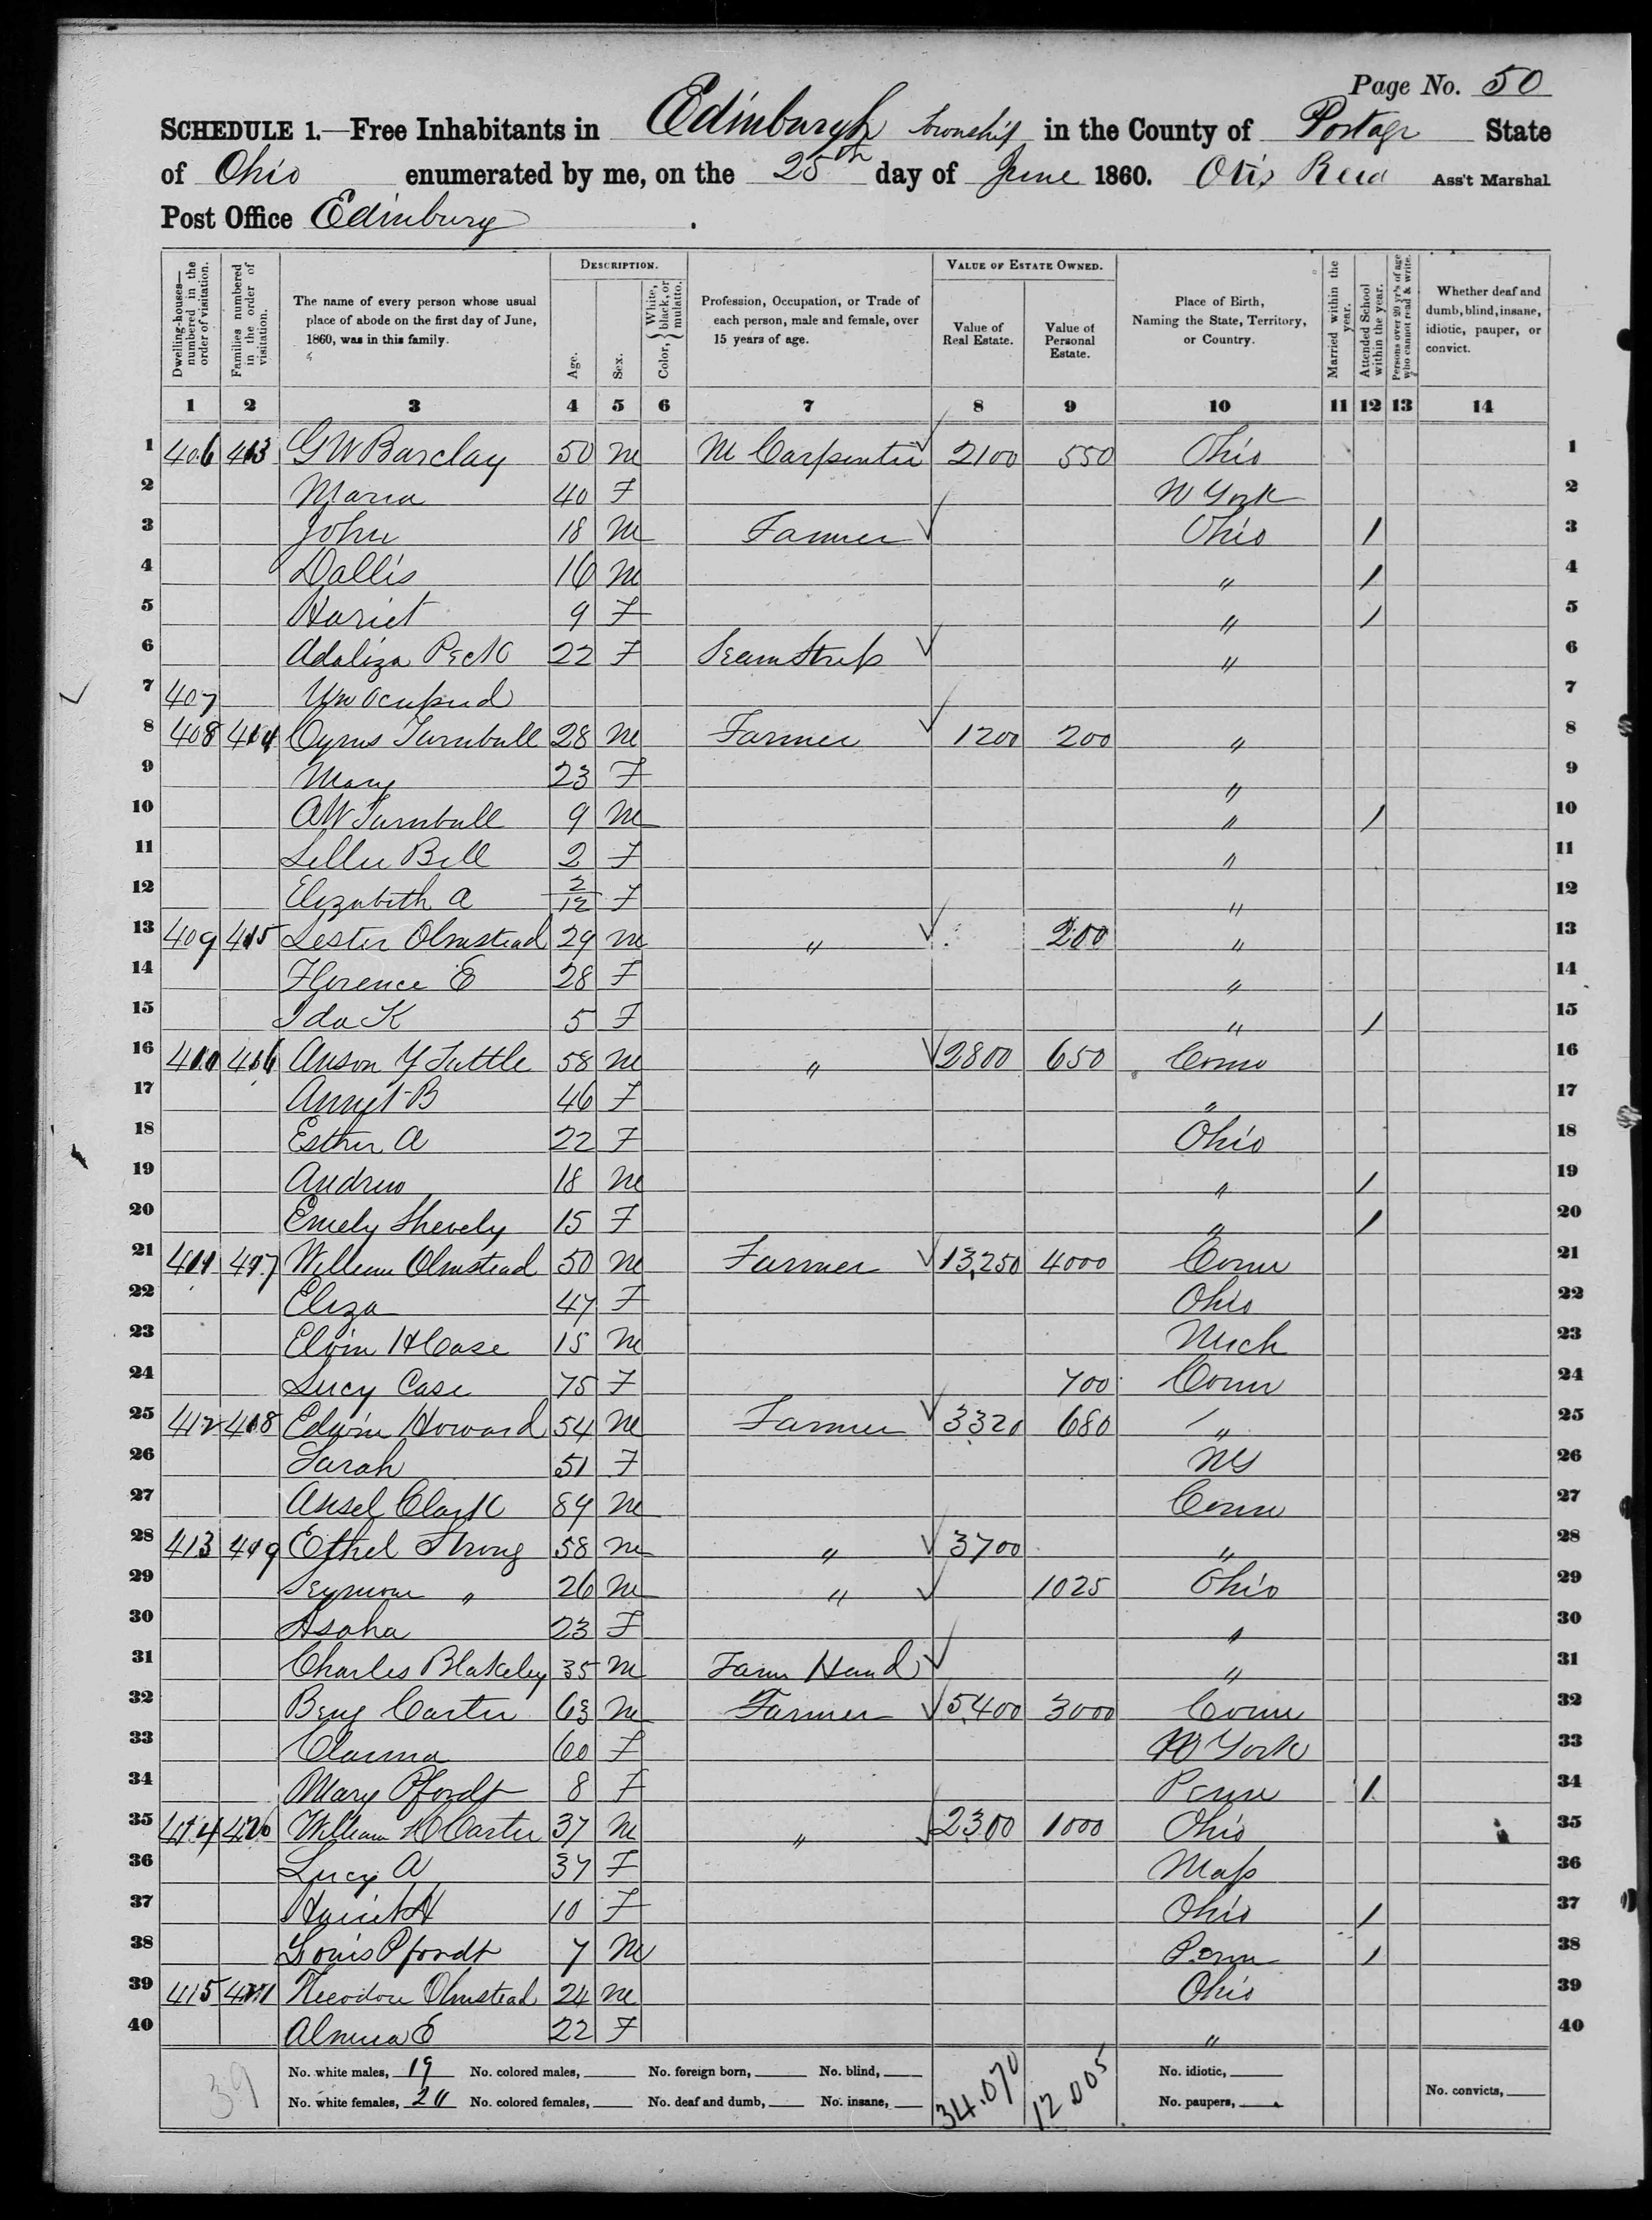 Page No. 50
SCHEDULE 1.—Free Inhabitants in Edinburgh township in the County of Portage State
of Ohio enumerated by me, on the 25th day of June 1860. Otis Reed Ass't Marshal
Post Office Edinburg.
Dwelling-houses—numbered in the order of visitation.
Families numbered in the order of visitation.
The name of every person whose usual place of abode on the first day of June, 1860, was in this family.
DESCRIPTION.
Age.
Sex.
Color, { White, black, or mulatto.
Profession, Occupation, or Trade of each person, male and female, over 15 years of age.
VALUE OF ESTATE OWNED.
Value of Real Estate.
Value of Personal Estate.
Place of Birth, Naming the State, Territory, or Country.
Married within the year.
Attended School within the year.
Persons over 20 yr's of age who cannot read & write.
Whether deaf and dumb, blind, insane, idiotic, pauper, or convict.
1 2 3 4 5 6 7 8 9 10 11 12 13 14
1 406 413 G W Barclay 50 m M Carpenter 2100 550 Ohio 1
2 Maria 40 F N York 2
3 John 18 m Farmer Ohio / 3
4 Dallis 16 m " / 4
5 Hariet 9 F " / 5
6 Adaliza Peck 22 F Seamstress " 6
7 407 Unocupied 7
8 408 414 Cyrus Turnbull 28 m Farmer 1200 200 " 8
9 Mary 23 F " 9
10 A W Turnbull 9 m " / 10
11 Lillie Bell 2 F " 11
12 Elizabeth A 2/12 F " 12
13 409 415 Lester Olmstead 29 m " 200 " 13
14 Florence E 28 F " 14
15 Ida K 5 F " / 15
16 410 416 Anson Y Tuttle 58 m " 2800 650 Conn 16
17 Annet B 46 F " 17
18 Esther A 22 F Ohio 18
19 Andrew 18 m " / 19
20 Emely Shevely 15 F " / 20
21 411 417 William Olmstead 50 m Farmer 13,250 4000 Conn 21
22 Eliza 47 F Ohio 22
23 Elvin H Case 15 m Mich 23
24 Lucy Case 75 F 700 Conn 24
25 412 418 Edwin Howard 54 m Farmer 3320 680 " 25
26 Sarah 51 F NY 26
27 Ansel Clark 84 m Conn 27
28 413 419 Ethel Strong 58 m " 3700 " 28
29 Seymour " 26 m " 1025 Ohio 29
30 23 F " 30
31 Charles Blakeley 35 m Farm Hand " 31
32 Benj Carter 63 m Farmer 5400 3000 Conn 32
33 60 F N York 33
34 Mary Pfordt 8 F Penn / 34
35 414 420 William H Carter 37 m " 2300 1000 Ohio 35
36 Lucy A 37 F Mass 36
37 Hariet H 10 F Ohio / 37
38 Louis Pfordt 7 M Penn / 38
39 415 421 Theodore Olmstead 24 m Ohio 39
40 Almira E 22 F " 40
39
No. white males, 19 No. colored males, No. foreign born, No. blind, 34.070 12005 No. idiotic,
No. white females, 20 No. colored females, No. deaf and dumb, No. insane, No. paupers, No. convicts,